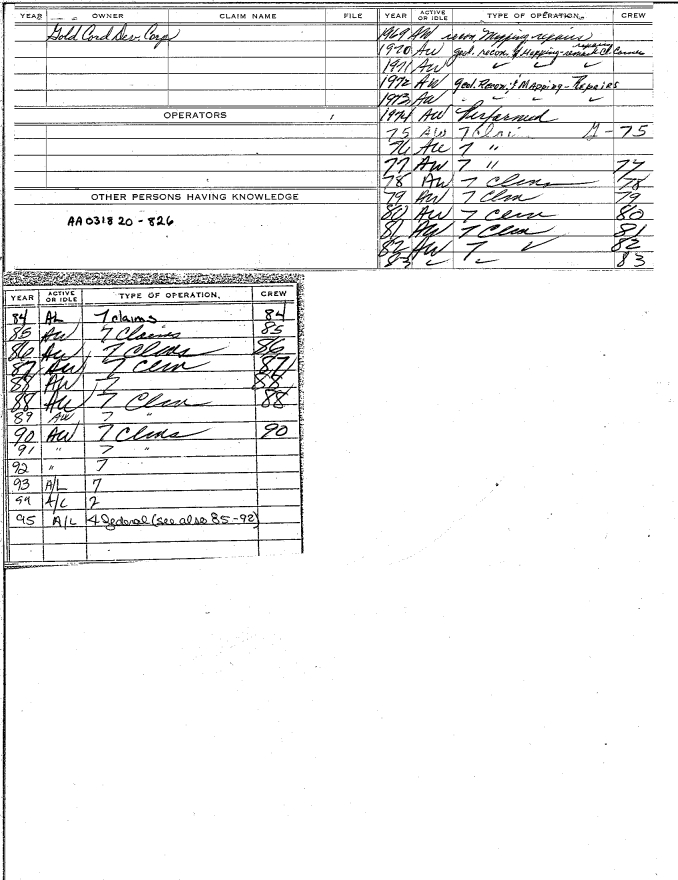 YEAR OWNER CLAIM NAME FILE YEAR ACTIVE OR IDLE TYPE OF OPERATION CREW
Gold Cord Dev. Corp 1969 AW recon, Mapping repairs
1970 AW Geol. recon. & Mapping - remark Cl. Corner repairing
1971 AW ✓ ✓ ✓
1972 AW Geol. Recon. & Mapping - Repairs
1973 AW " " ✓ ✓
OPERATORS 1974 AW Performed
75 AW 7 - 75
76 AW 7 "
77 AW 7 " 77
78 AW 7 Clms 78
OTHER PERSONS HAVING KNOWLEDGE 79 AW 7 Clm 79
AA031820-826 80 AW 7 Clm 80
81 AW 7 Clm 81
82 AW 7 ✓ 82
83 ✓ ✓ 83
YEAR ACTIVE OR IDLE TYPE OF OPERATION CREW
84 AL 7 claims 84
85 AW 7 Claims 85
86 AW 7 Clms 86
87 AW 7 Clm 87
88 AW 7 88
88 AW 7 Clm 88
89 AW 7 "
90 AW 7 Clms 90
91 " 7 "
92 " 7
93 A/L 7
94 A/L 2
95 A/L 4 federal (see also 85-92)